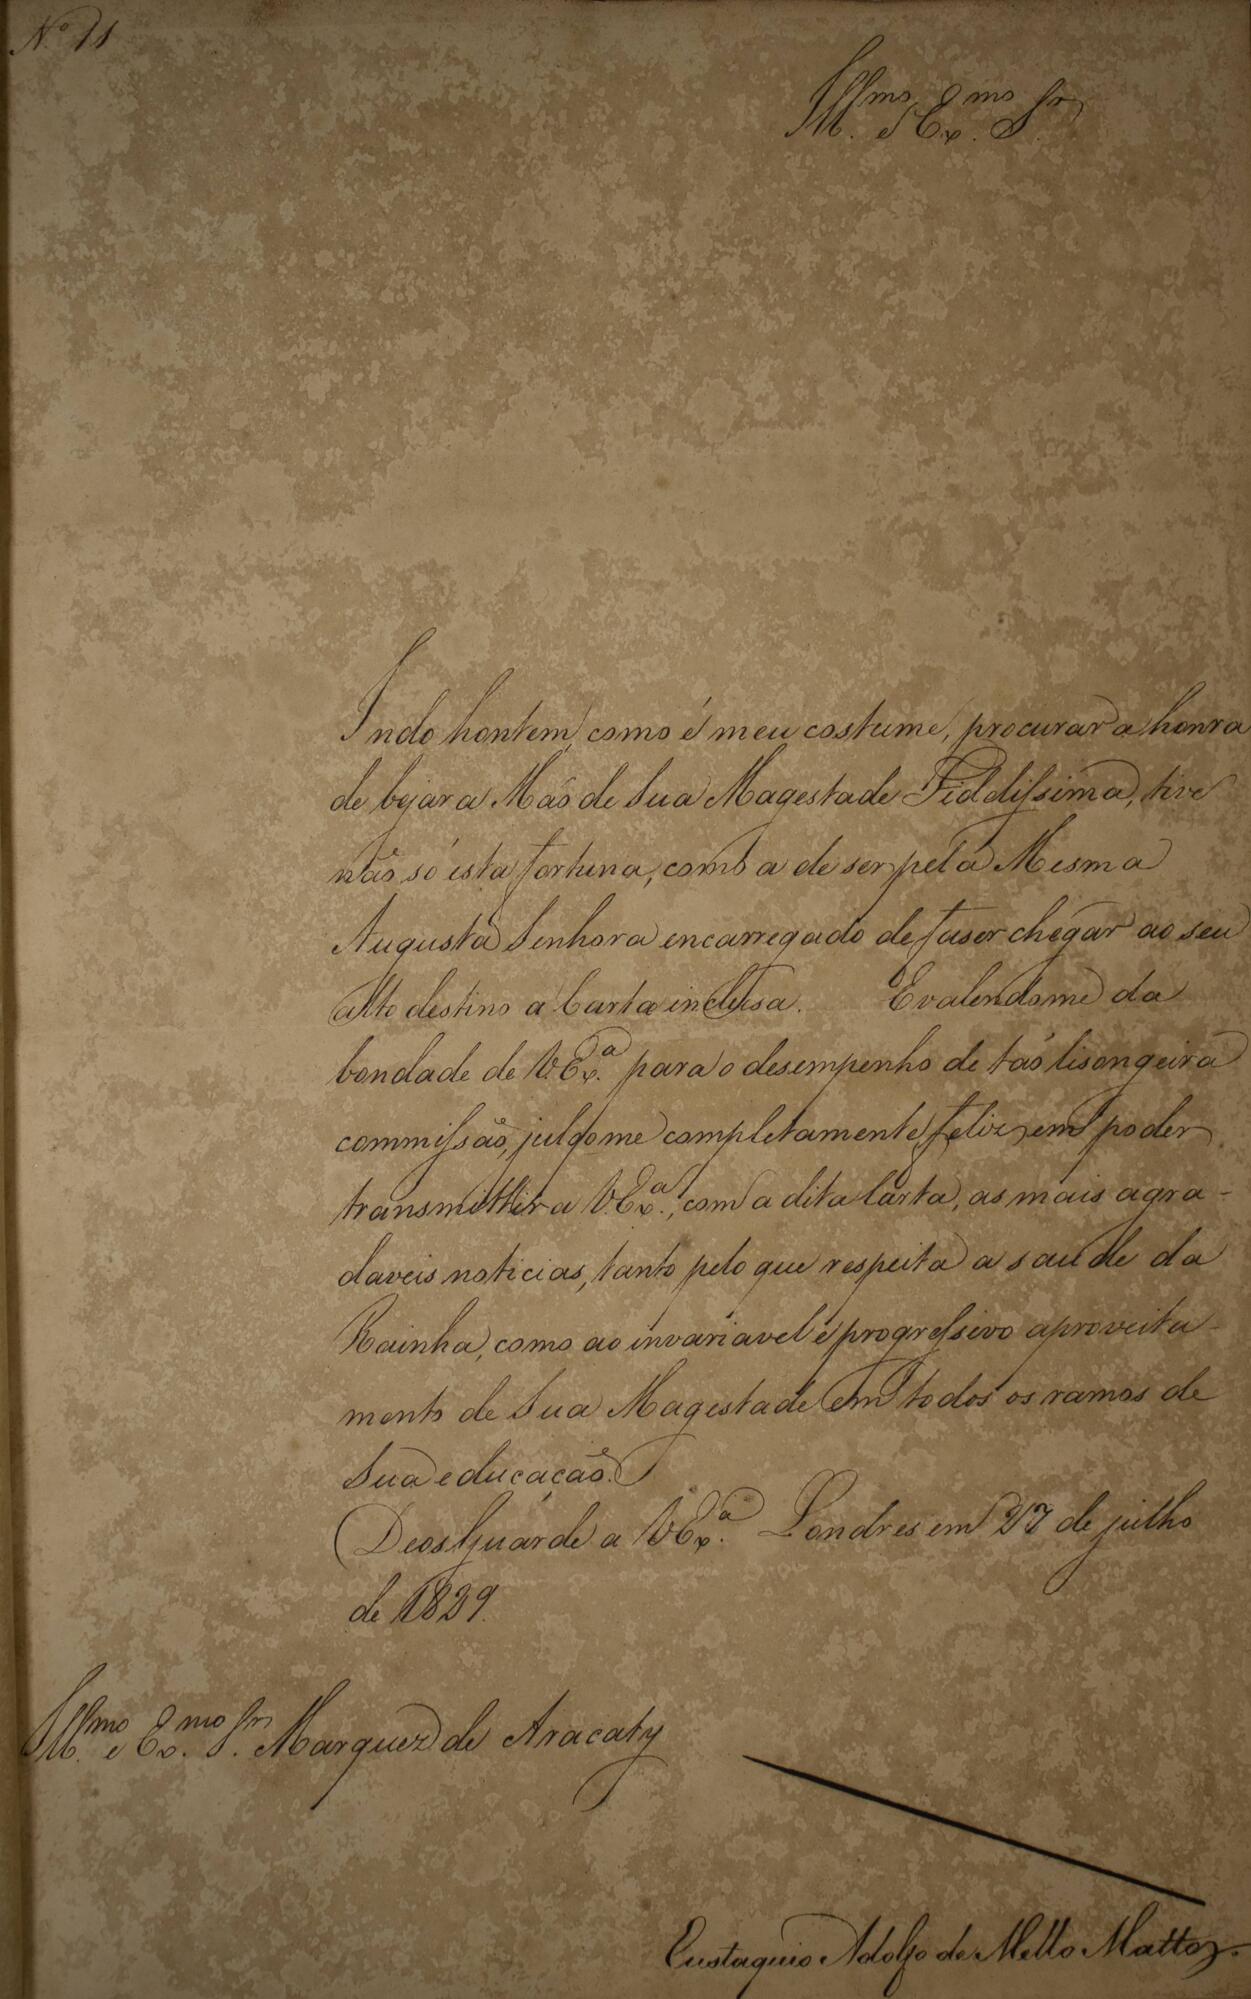 Nº 11
Illmo. e Exmo. Sr.
Indo hontem, como é meu costume, procurar a honra
de bejar a Maõ de Sua Magestade Fidelissima, tive
naõ só esta fortuna, como a de ser pela Mesma
Augusta Senhora encarregado de faser chegar ao seu
alto destino a Carta inclusa. E valendome da
bondade de V. Exa. para o desempenho de taõ lisongeira
commissaõ, julgome completamente feliz em poder
transmittir a V. Exa., com a dita Carta, as mais agra-
daveis noticias, tanto pelo que respeita a saude da
Rainha, como ao invariavel e progressivo aproveita-
mento de Sua Magestade em todos os ramos de
Sua educaçaõ.
Deos Guarde a V. Exa. Londres em 27 de julho
de 1829.
Illmo. e Exmo. Sr. Marquez de Aracaty
Eustaquio Adolfo de Mello Mattos.